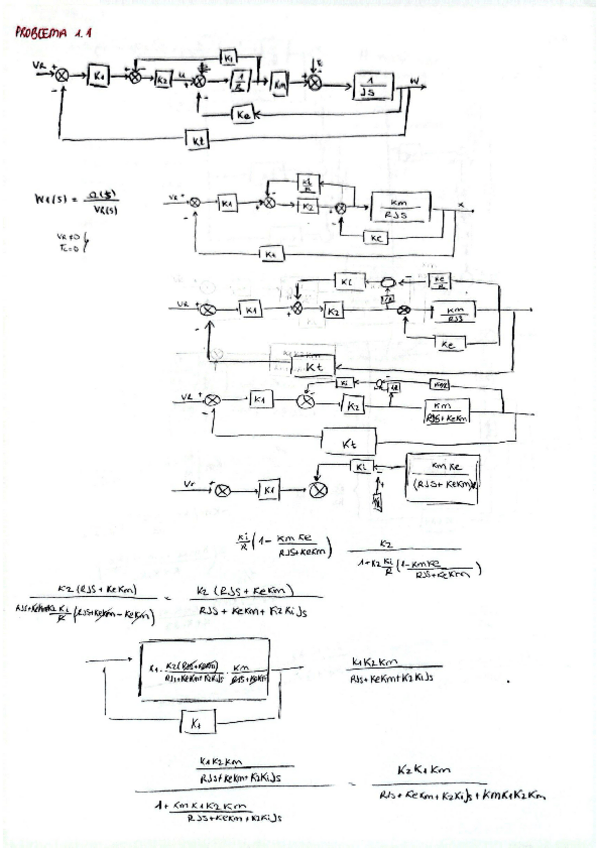 PROBLEMA 1.1
VR + K1 + K2 u 1/R Km + 1/JS W
Ki
Ke
Kt
WR(s) = Ω(s)/VR(s)
TL=0
VR + K1 K2 Km/RJS
Ki/R
Ke
Kt
VR + K1 + K2 Km/RJS
Ki Ke/R
Ke
Kt
VR + K1 K2 Km/RJS+KeKm
Ki
Kt
Vr + K1 Ki KmKe/(RJS+KeKm)
Ki/R (1 - KmKe/RJS+KeKm) K2/1+K2Ki/R (1-KmKe/RJS+KeKm)
K2(RJS+KeKm)/RJS+KeKm+K2Ki/R (RJS+KeKm-KeKm) = K2(RJS+KeKm)/RJS+KeKm+K2KiJs
K1· K2(RJS+KeKm)/RJS+KeKm+K2KiJs · Km/RJS+KeKm K1K2Km/RJS+KeKm+K2KiJs
Kt
K1K2Km/RJS+KeKm+K2KiJs / 1+ KmK1K2Km/RJS+KeKm+K2KiJs = K2K1Km/RJS+KeKm+K2KiJs+KmK1K2Km